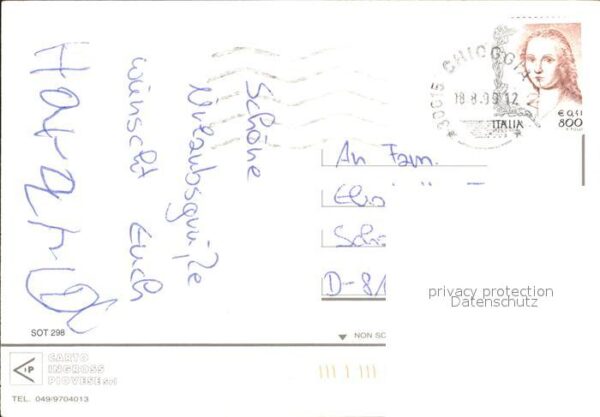 Schöne
Urlaubsgrüße
wünscht Euch
An Fam.
D-81
30015 CHIOGGIA
18.8.99 12
ITALIA
€ 0,41
800
privacy protection
Datenschutz
SOT 298
NON SC
CARTO
INGROSS
PIOVESE srl
TEL. 049/9704013